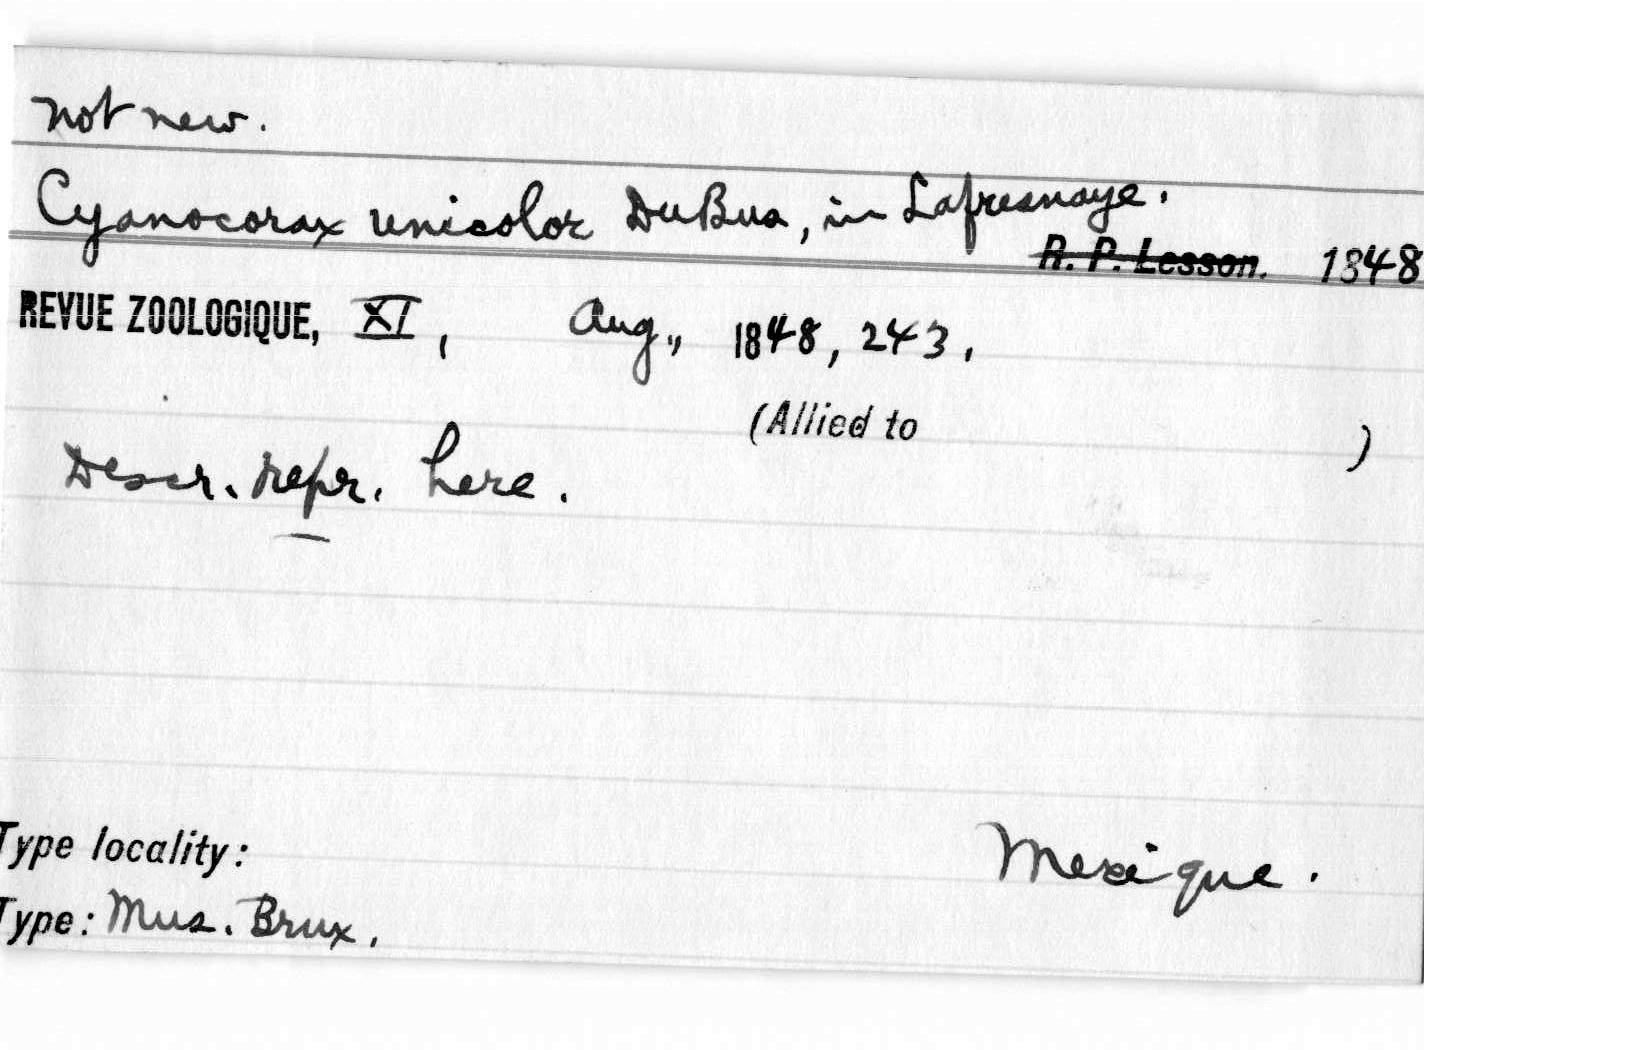 not new.
Cyanocorax unicolor DuBus, in Lafresnaye.
R. P. Lesson. 1848
REVUE ZOOLOGIQUE, XI, Aug., 1848, 243.
(Allied to )
Descr. repr. here.
Type locality: Mexique.
Type: Mus. Brux.